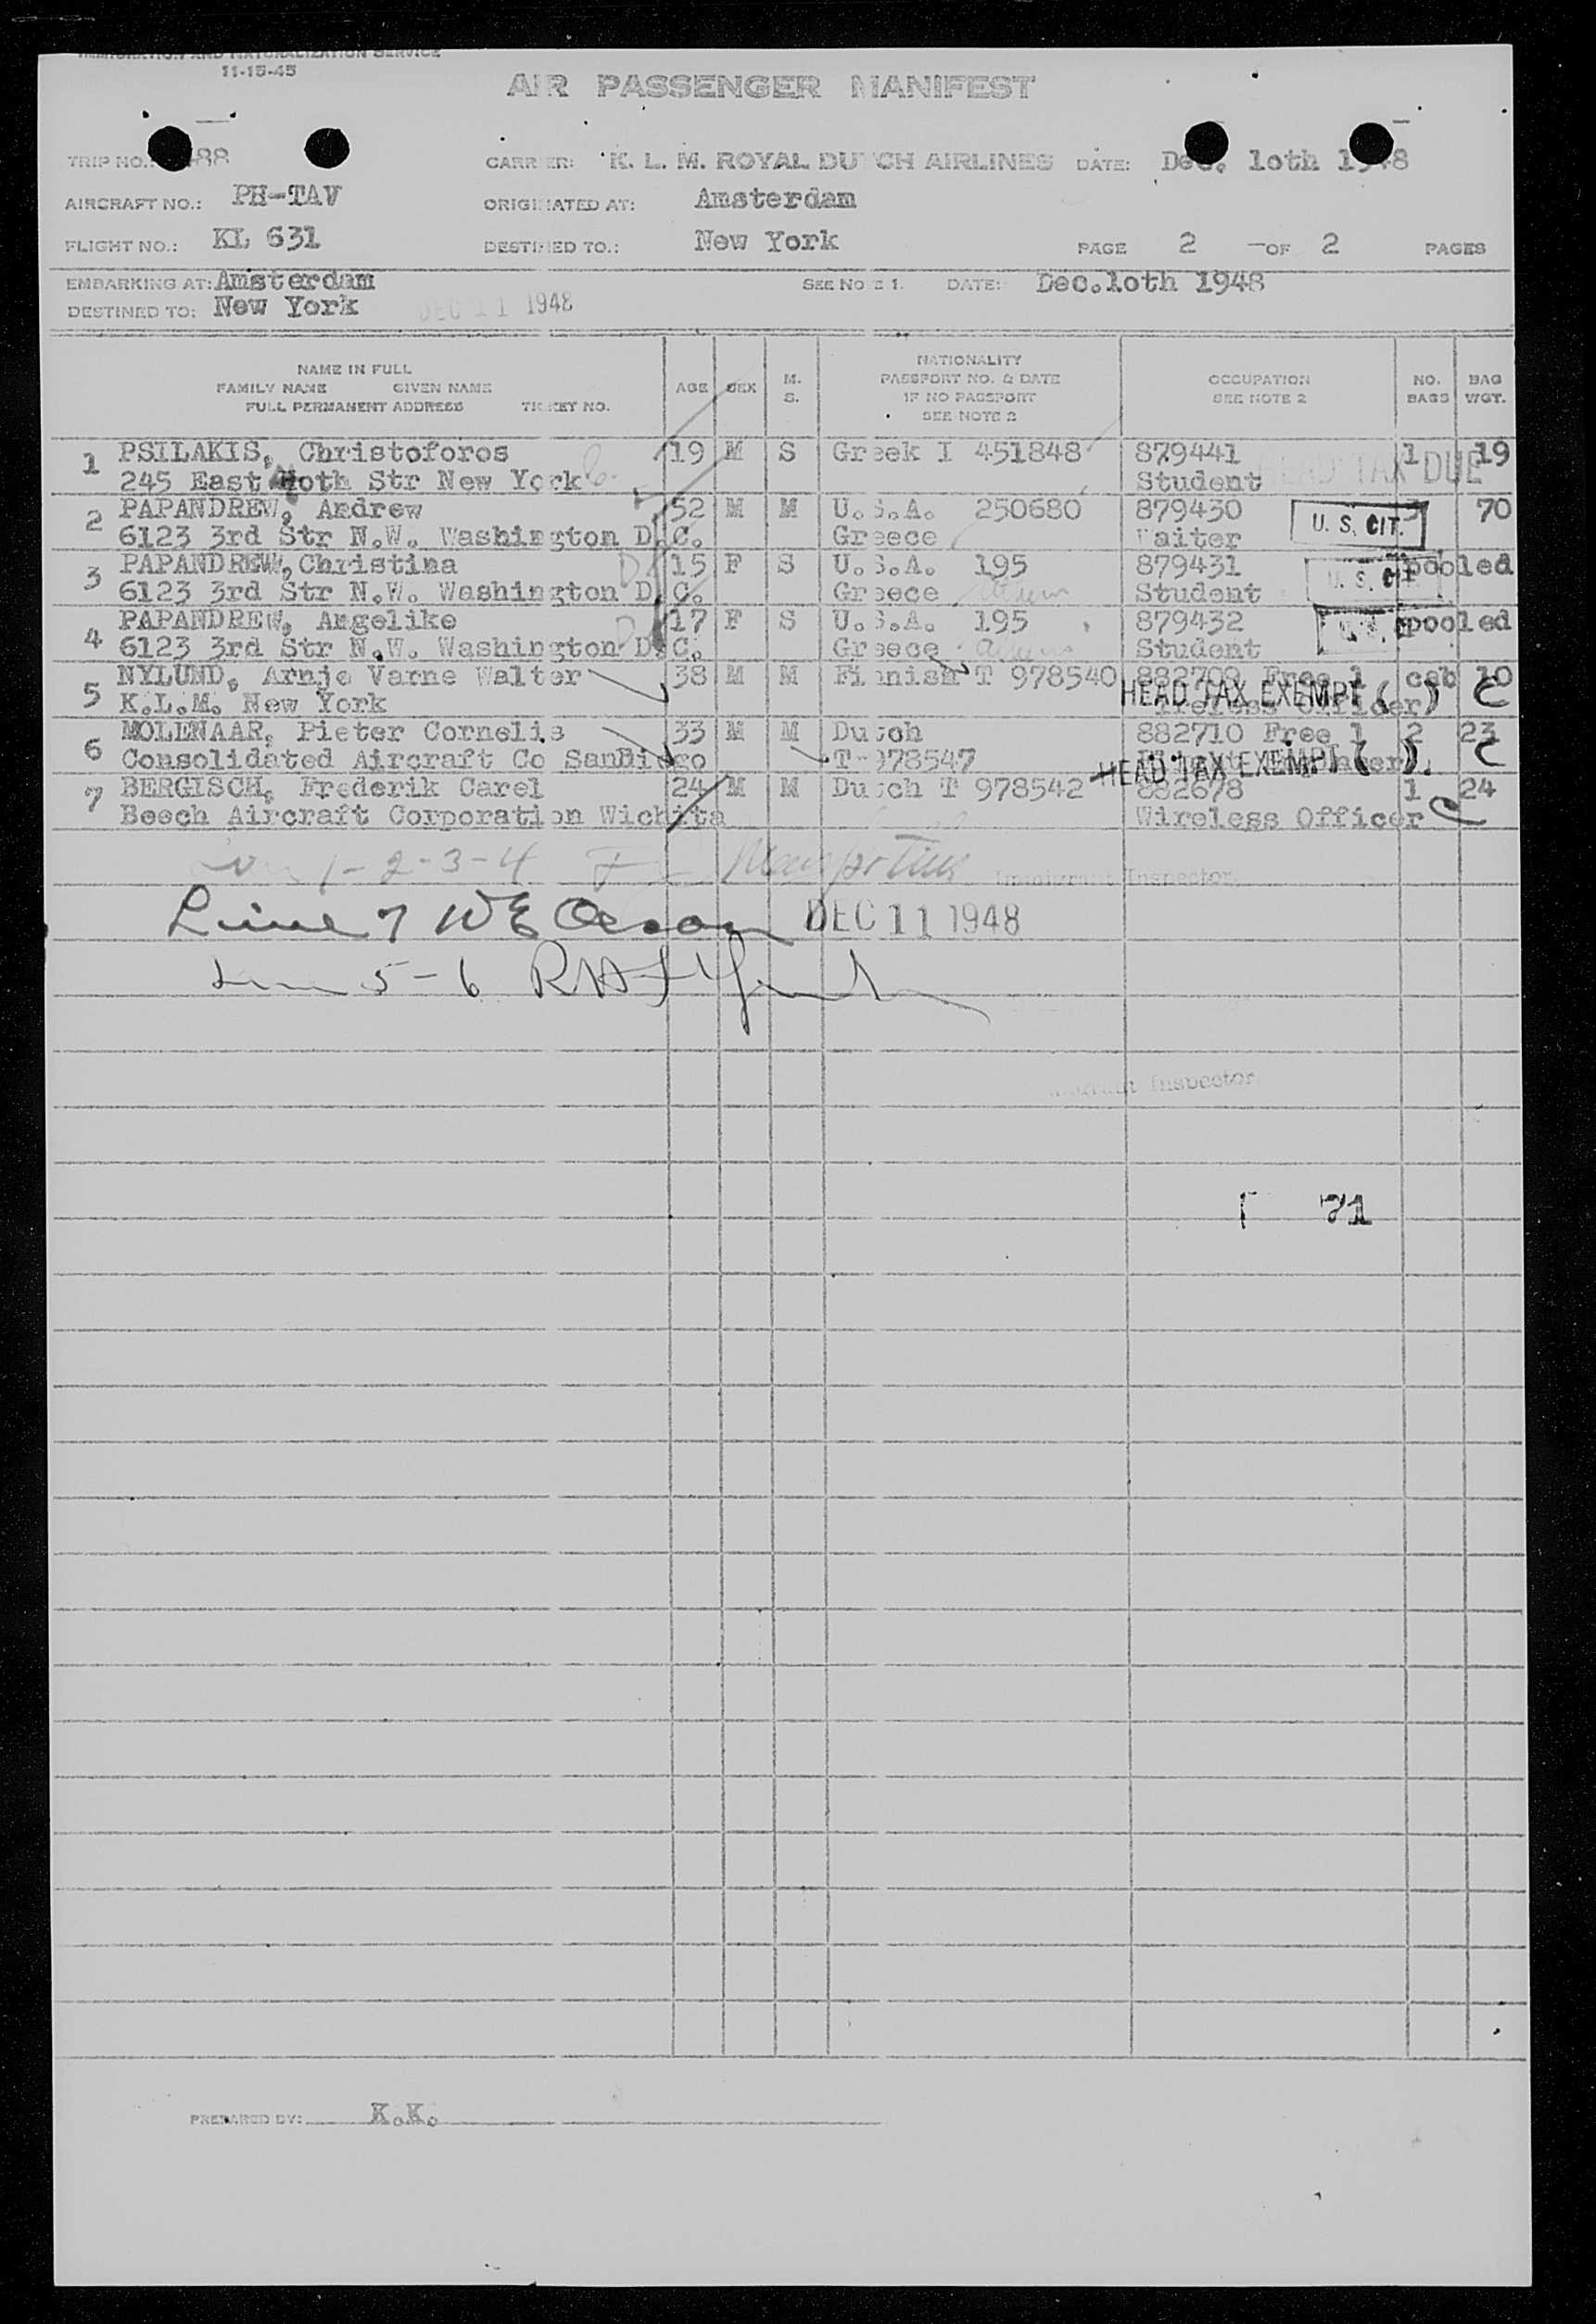 IMMIGRATION AND NATURALIZATION SERVICE
11-15-45
AIR PASSENGER MANIFEST
TRIP NO.: 88 CARRIER: K. L. M. ROYAL DUTCH AIRLINES DATE: Dec. 1oth 1948
AIRCRAFT NO.: PH-TAV ORIGINATED AT: Amsterdam
FLIGHT NO.: KL 631 DESTINED TO.: New York PAGE 2 OF 2 PAGES
EMBARKING AT: Amsterdam SEE NOTE 1. DATE: Dec.1oth 1948
DESTINED TO: New York DEC 11 1948
NAME IN FULL
FAMILY NAME GIVEN NAME
FULL PERMANENT ADDRESS TICKET NO.
AGE SEX M. S.
NATIONALITY
PASSPORT NO. & DATE
IF NO PASSPORT
SEE NOTE 2
OCCUPATION
SEE NOTE 2
NO. BAGS
BAG WGT.
1 PSILAKIS, Christoforos 19 M S Greek I 451848 879441 1 19
245 East oth Str New York Student HEAD TAX DUE
2 PAPANDREW, Andrew 52 M M U.S.A. 250680 879430 70
6123 3rd Str N.W. Washington D.C. Greece Waiter U. S. CIT.
3 PAPANDREW, Christina 15 F S U.S.A. 195 879431 pooled
6123 3rd Str N.W. Washington D.C. Greece Student U. S. CIT
4 PAPANDREW, Angelike 17 F S U.S.A. 195 879432 pooled
6123 3rd Str N.W. Washington D.C. Greece Student
5 NYLUND, Arnje Varne Walter 38 M M Finnish T 978540 882709 Free 1 cab 10
K.L.M. New York HEAD TAX EXEMPT ( ) C
6 MOLENAAR, Pieter Cornelis 33 M M Dutch 882710 Free 1 2 23
Consolidated Aircraft Co SanDiego T-978547 HEAD TAX EXEMPT ( ) C
7 BERGISCH, Frederik Carel 24 M M Dutch T 978542 882678 1 24
Beech Aircraft Corporation Wichita Wireless Officer C
1-2-3-4 Immigrant Inspector
Line 7 W E DEC 11 1948
5-6
Inspector
71
PREPARED BY: K.K.